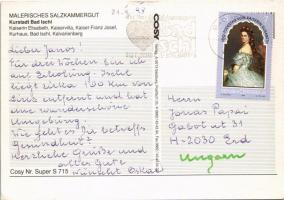 MALERISCHES SALZKAMMERGUT
Kurstadt Bad Ischl
Kaiserin Elisabeth, Kaiservilla, Kaiser Franz Josef,
Kurhaus, Bad Ischl, Kalvarienberg
COSY
Lieber Janos!
Für drei Wochen bin ich
auf Erholung. Ischl
liegt zirka 100 km von
Linz entfernt und hat
eine wunderschöne
Umgebung.
Wie geht es Dir betreffs
Gesundheit?
Herzliche Grüße und
alles Gute
wünscht Oskar
Herrn
Janos Papai
Gabot ut 31
H-2030 Erd
Ungarn
Cosy Nr. Super S 715